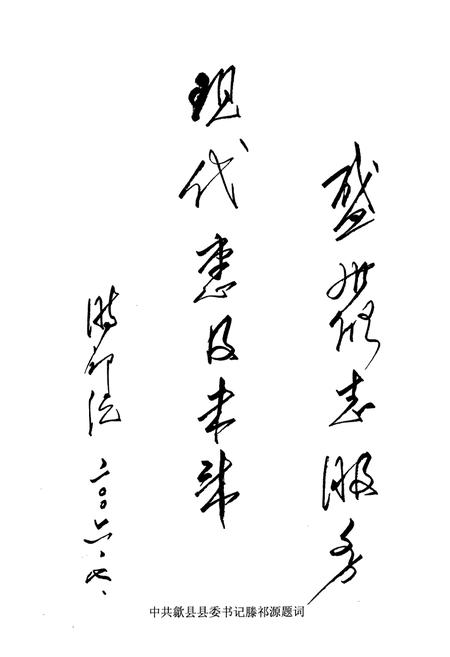 盛世修志服务
现代惠及未来
滕祁源
二〇〇六.七.
中共歙县县委书记滕祁源题词